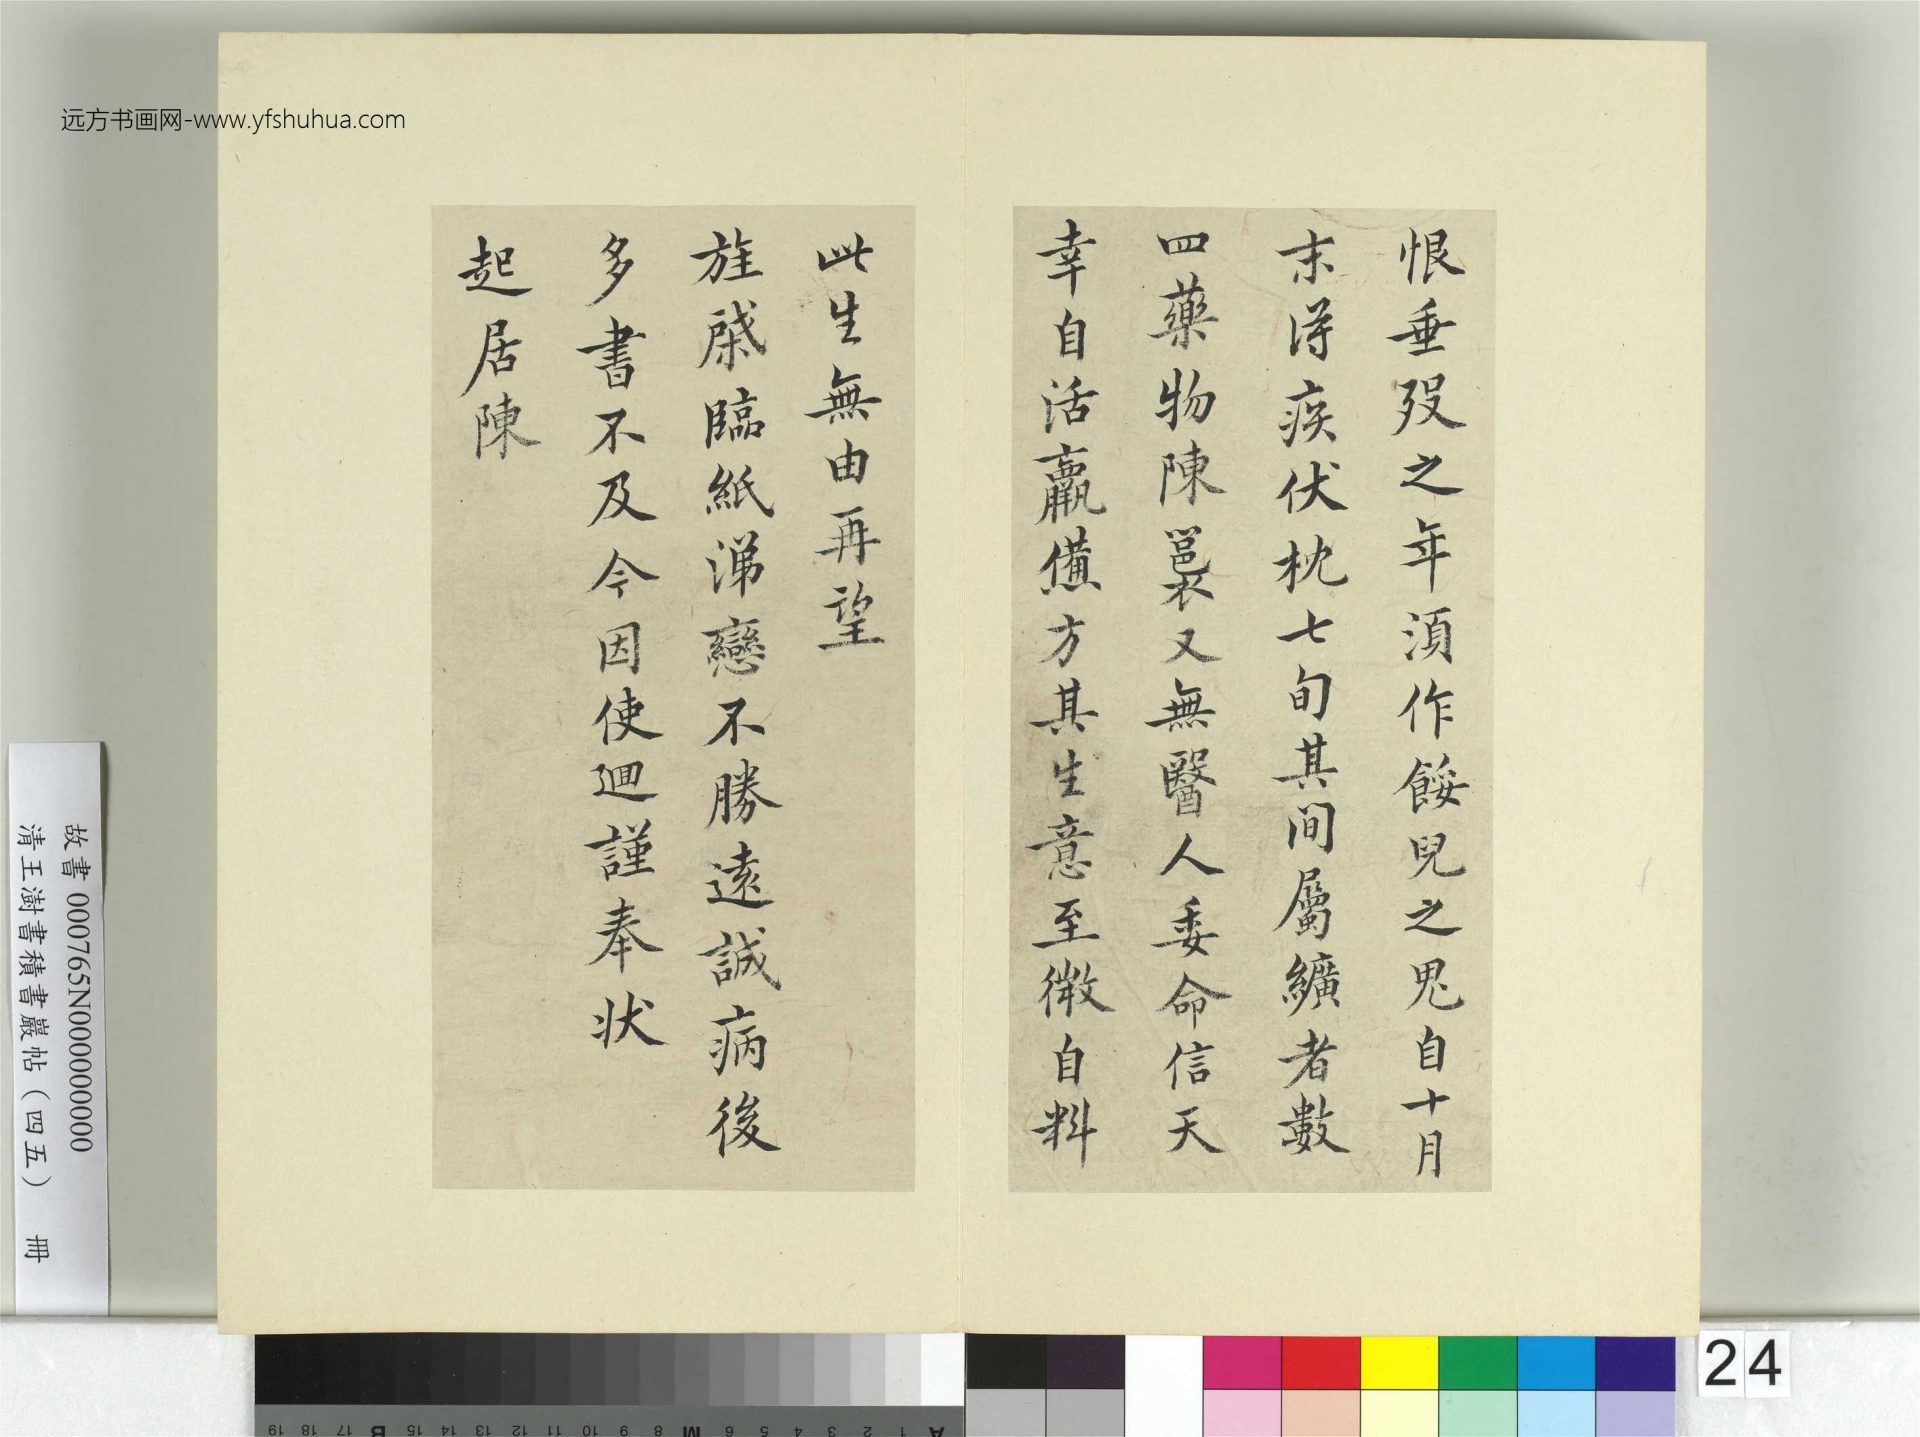 远方书画网-www.yfshuhua.com
恨垂歿之年須作餒皃之鬼自十月
末得疾伏枕七旬其间屬纊者數
四藥物陳裛又無醫人委命信天
幸自活羸憊方其生意至微自料
此生無由再望
旌戚臨紙涕戀不勝遠誠病後
多書不及今因使迴謹奉状
起居陳
故書 000765N000000000
清王澍書積書巖帖（四五） 冊
24
19 18 17 B 15 14 13 12 11 10 9 8 M 6 5 4 3 2 1 A